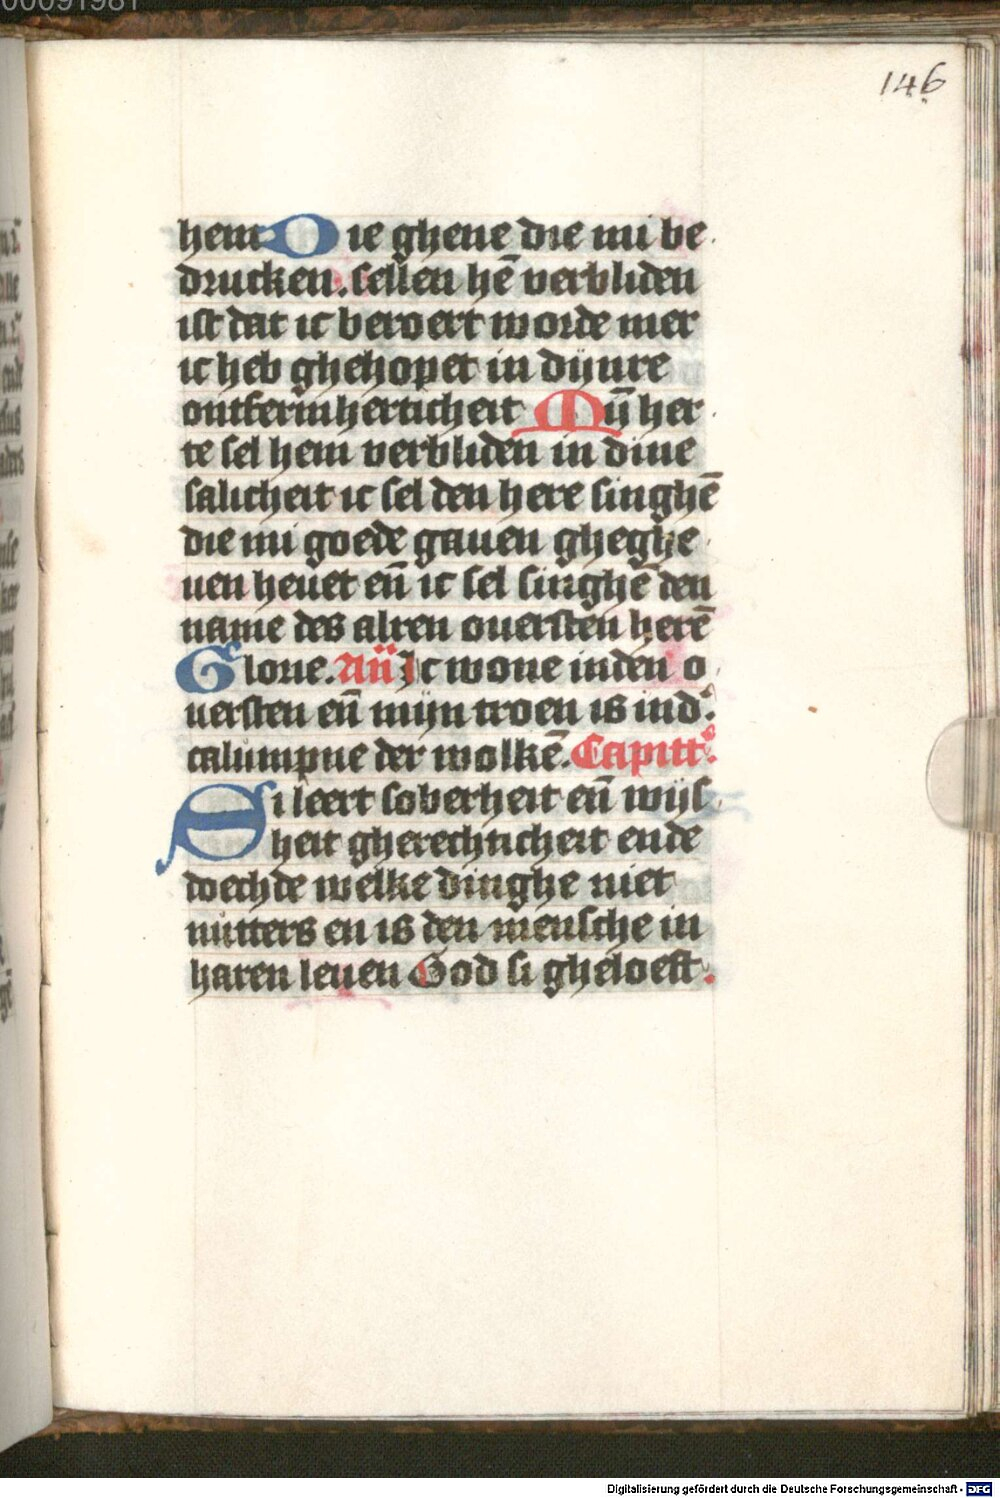 00091981
146
hem Die ghene die mi be
drucken. sellen hē verbliden
ist dat ic beroert worde mer
ic heb ghehopet in dijnre
ontfermherticheit Mȳ her
te sel hem verbliden in dine
salicheit ic sel den here singhē
die mi goede gauen gheghe
uen heuet eñ ic sel singhē den
name des alren ouersten herē
Glorie. Añ Ic wone inden o
uersten eñ mijn troen is ind'
calumpne der wolkē. Capitt'
Si leert soberheit eñ wijs
heit gherechticheit ende
doechde welke dinghe niet
nutters en is den mensche in
haren leuen God si gheloeft.
Digitalisierung gefördert durch die Deutsche Forschungsgemeinschaft - DFG